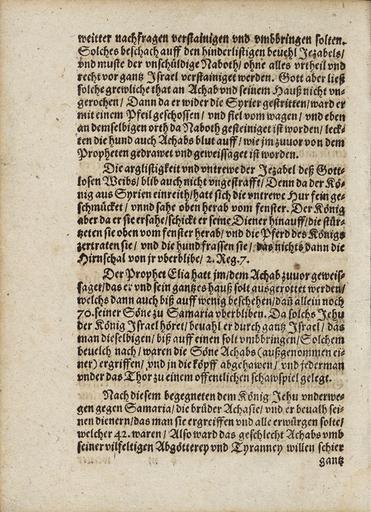 weitter nachfragen verstainigen vnd vmbbringen solten.
Solches beschach auff den hinderlistigen beuehl Jezabels/
vnd muste der vnschüldige Naboth/ ohne alles vrtheil vnd
recht vor gantz Israel verstainiget werden. Gott aber ließ
solche grewliche that an Achab vnd seinem Hauß nicht vn-
gerochen/ Dann da er wider die Syrier gestritten/ ward er
mit einem Pfeil geschossen/ vnd fiel vom wagen/ vnd eben
an demselbigen orth da Naboth gesteiniget ist worden/ leck-
ten die hund auch Achabs blut auff/ wie jm zuuor von dem
Propheten gedrawet vnd geweissaget ist worden.
Die arglistigkeit vnd vntrewe der Jezabel deß Gott-
losen Weibs/ blib auch nicht vngestrafft/ Denn da der Kö-
nig aus Syrien einreith/ hatt sich die vntrewe Hur fein ge-
schmückt/ vnnd sahe oben herab vom fenster. Der König
aber da er sie ersahe/ schickt er seine Diener hinauff/ die stür-
tzten sie oben vom fenster herab/ vnd die Pferd des Königs
zertraten sie/ vnd die hund frassen sie/ das nichts dann die
Hirnschal von jr vberblibe/ 2. Reg. 7.
Der Prophet Elia hatt jm/ dem Achab zuuor geweis-
saget/ das er vnd sein gantzes hauß solt ausgerottet werden/
welchs dann auch biß auff wenig beschehen/ dañ allein noch
70. seiner Söne zu Samaria vberbliben. Da solchs Jehu
der König Israel höret/ beuahl er durch gantz Israel/ das
man dieselbigen/ biß auff einen solt vmbbringen/ Solchem
beuelch nach/ waren die Söne Achabs (außgenommen ei-
ner) ergriffen/ vnd jn die köpff abgehawen/ vnd jederman
vnder das Thor zu einem offentlichen schawspiel gelegt.
Nach diesem begegneten dem König Jehu vnderwe-
gen gegen Samaria/ die brüder Achasie/ vnd er beualh sei-
nen dienern/ das man sie ergreiffen vnd alle erwürgen solte/
welcher 42. waren/ Also ward das geschlecht Achabs vmb
seiner vilfeltigen Abgötterey vnd Tyranney willen schier
gantz